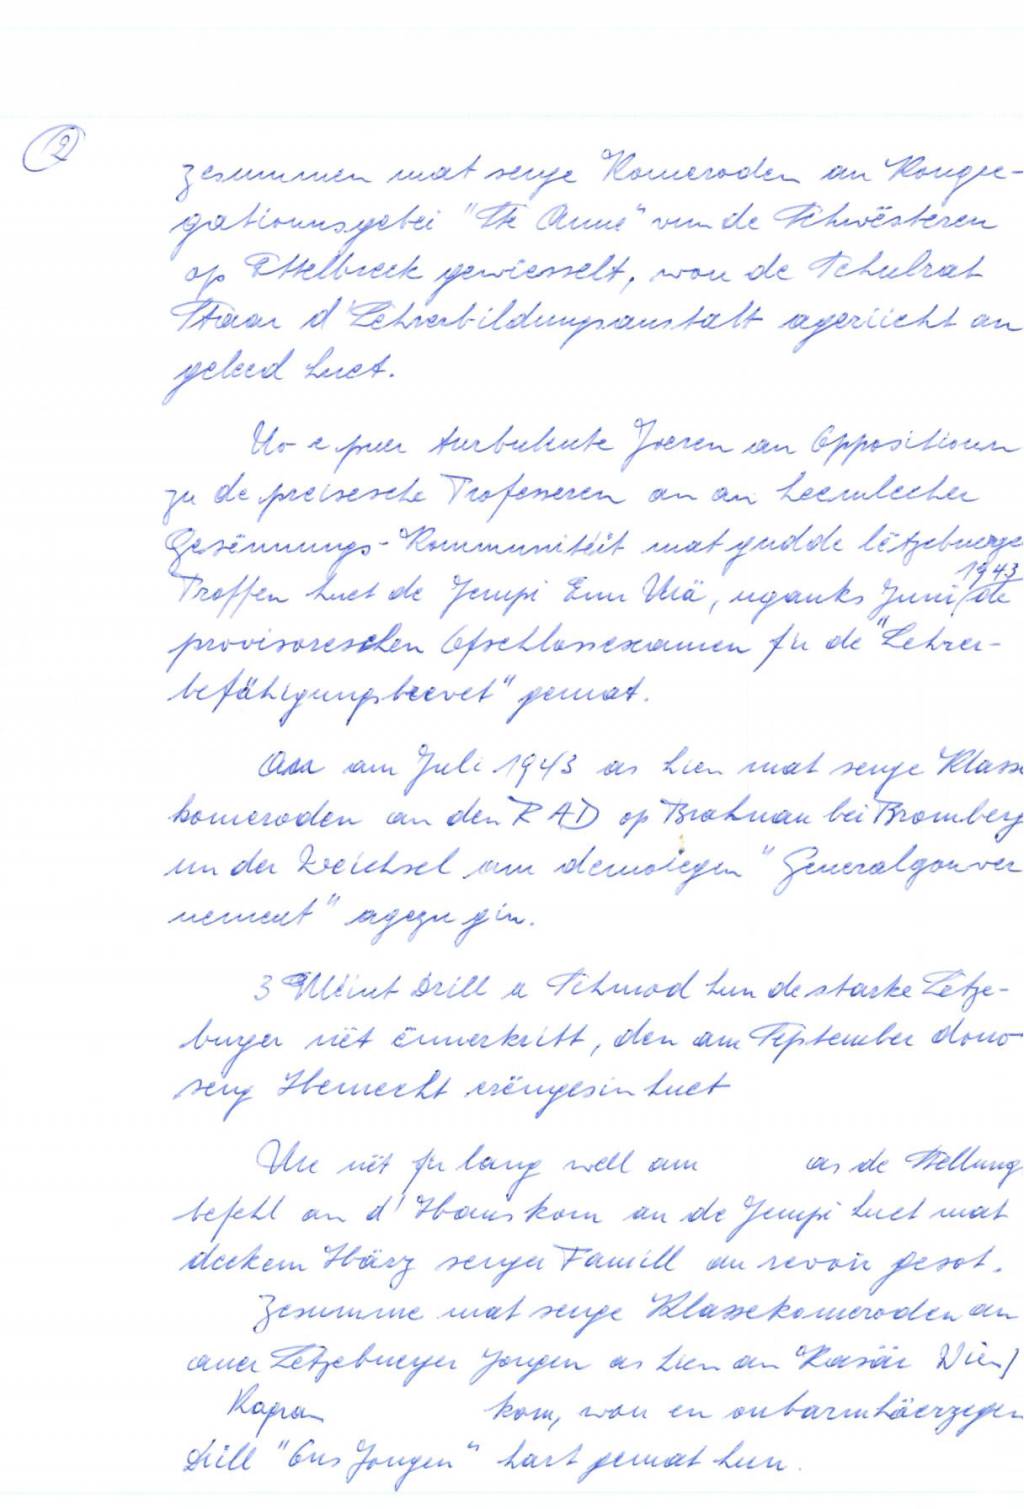 2
zesummen mat senge Komeroden an Kongre-
gatiounsgebei "Ste Anne" vun de Schwësteren
op Ettelbreck gewiesselt, wou de Schulrat
Staar d'Lehrerbildungsanstalt ageriicht an
geleed huet.
No e puer turbulente Joeren an Oppositioun
zu de preisesche Professeren an an heemlecher
Gesënnungs-Kommunitéit mat gudde lëtzebuerge
Proffen huet de Jempi Enn Mä, uganks Juni 1943 de
provisoreschen Ofschlossexamen fir de "Lehrer-
befähigungsbrevet" gemat.
Am Juli 1943 as hien mat senge Klasse
komeroden an den RAD op Brahnau bei Bromberg
un der Weichsel am demolegen "Generalgouver
nement" agezu gin.
3 Méint Drill a Schmod hun de starke Lëtze-
burger nët ënnerkritt, den am September dono
seng Hemecht erëmgesin huet
Me nët fir lang well am as de Stellung
befehl an d'Haus kom an de Jempi huet mat
deckem Häerz senger Famill au revoir gesot.
Zesumme mat senge Klassekomeroden an
aner Lëtzebuerger Jongen as hien an Kasär Wien/
Kagran kom, wou en onbarmhäerzegen
Drill "Ons Jongen" hart gemat hun.